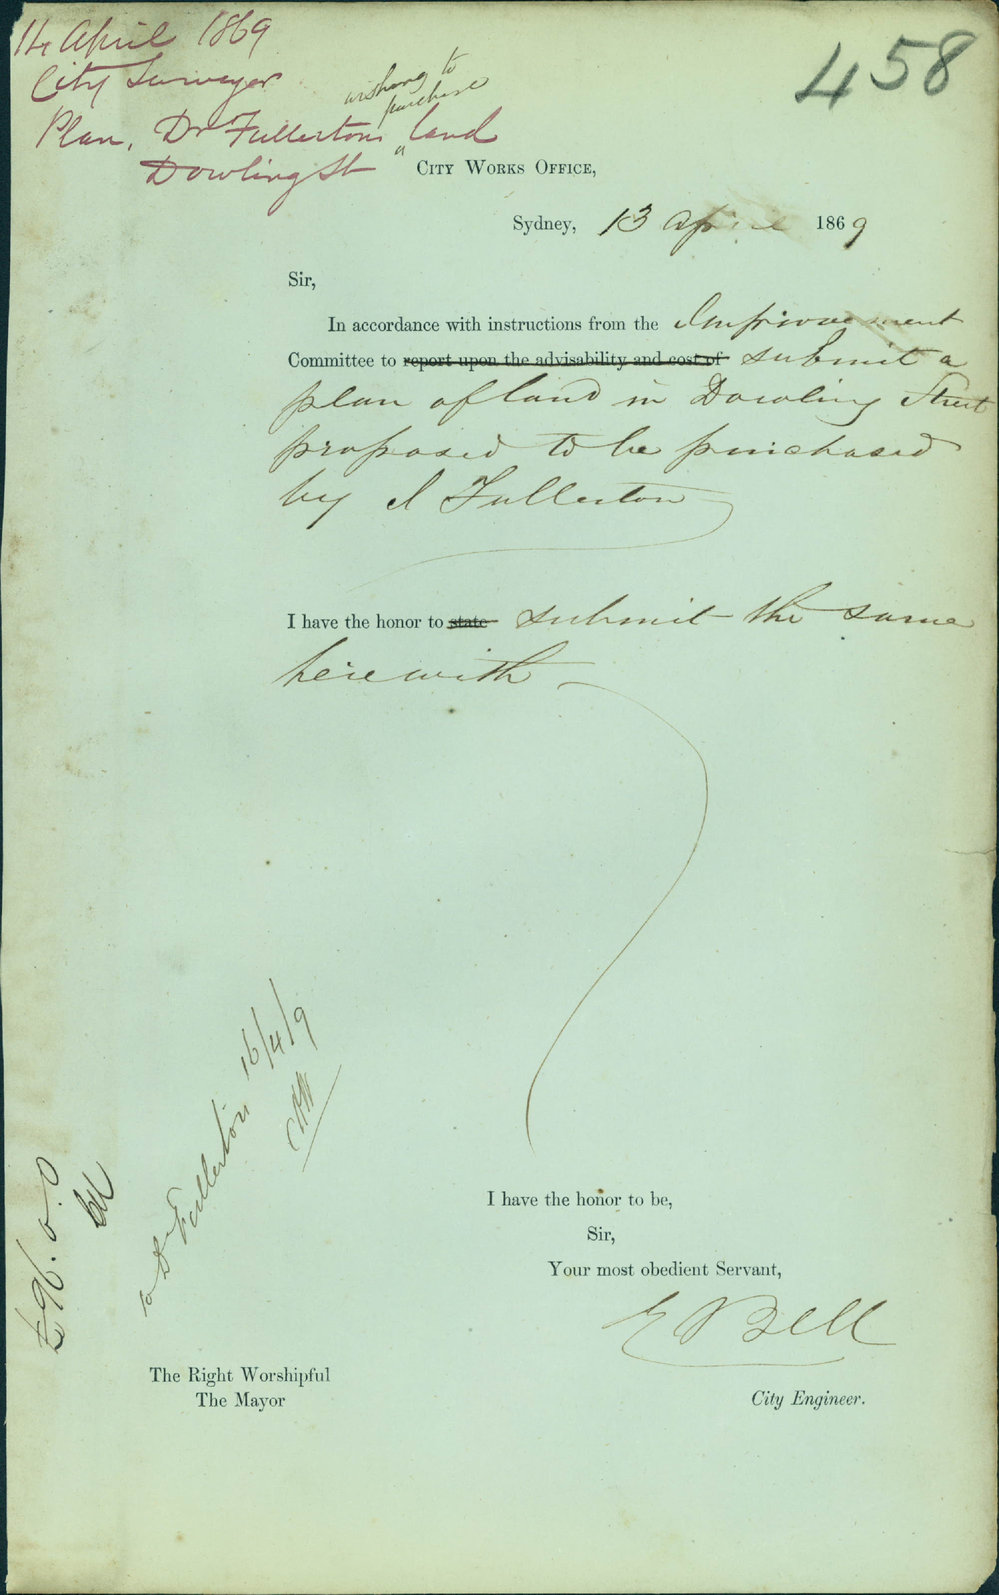 14 April 1869
458
City Surveyor
wishing to
purchase
Plan, Dr Fullerton land
Dowling St
CITY WORKS OFFICE,
Sydney, 13 April 1869
Sir,
In accordance with instructions from the Improvement
Committee to report upon the advisability and cost of submit a
plan of land in Dowling Street
proposed to be purchased
by J Fullerton
I have the honor to state submit the same
herewith
to Dr Fullerton 16/4/9
£96.0.0
I have the honor to be,
Sir,
Your most obedient Servant,
E Bell
The Right Worshipful
The Mayor
City Engineer.